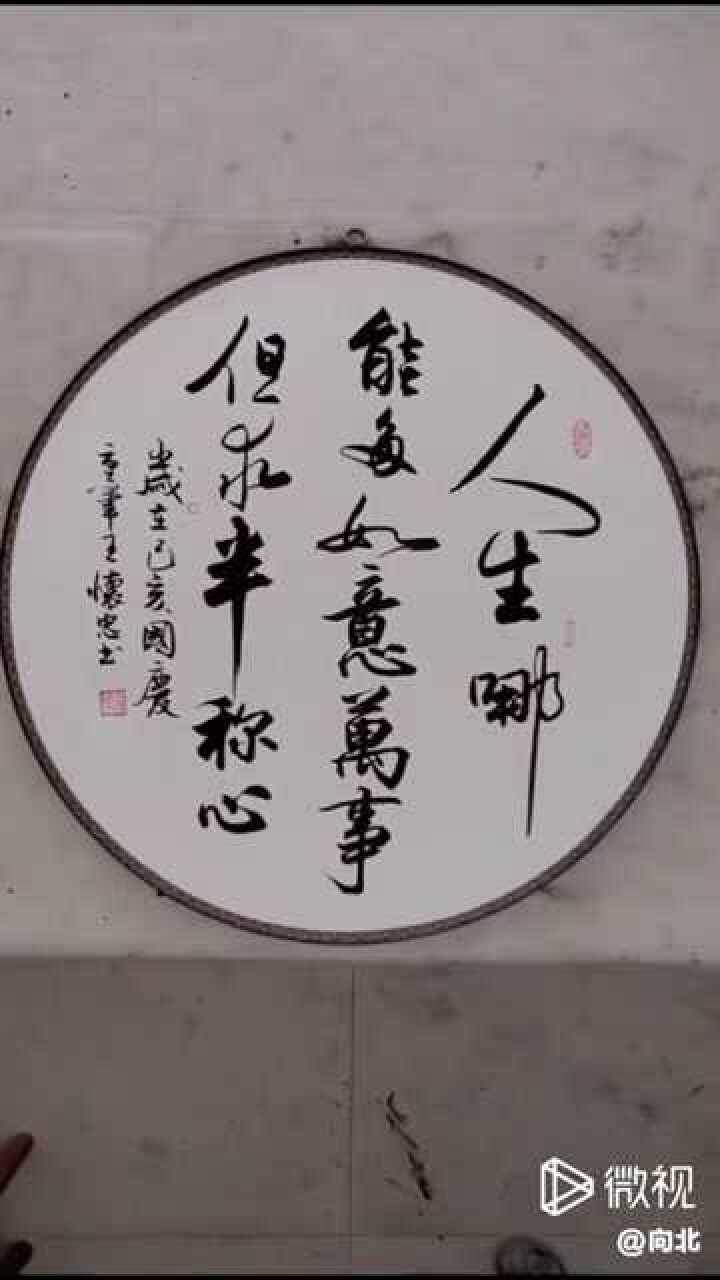 人生哪
能多如意萬事
但求半称心
歲在己亥國慶
王懷忠书
微视
@向北